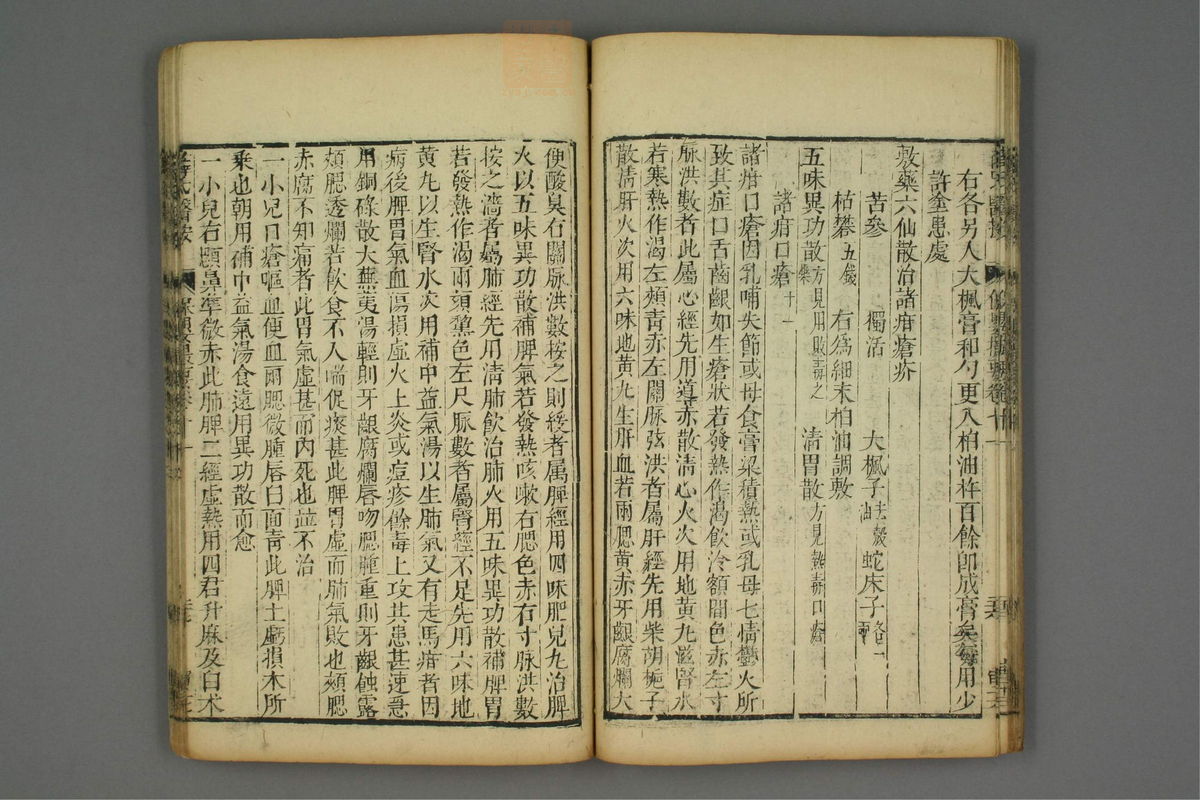 右各另入大楓膏和勻更入柏油杵百餘即成膏矣每用少
許塗患處
敷藥六仙散治諸疳瘡疥
苦參 獨活 大楓子去殼 蛇床子各一兩
枯礬五錢 右為細末柏油調敷
五味異功散方見用敗毒之藥 清胃散方見熱毒口瘡
諸疳口瘡十一
諸疳口瘡因乳哺失節或母食膏粱積熱或乳母七情鬱火所
致其症口舌齒齦如生瘡狀若發熱作渴飲冷額間色赤左寸
脉洪數者此屬心經先用導赤散清心火次用地黃丸滋腎水
若寒熱作渴左頰青赤左關脉弦洪者屬肝經先用柴胡梔子
散清肝火次用六味地黃丸生肝血若兩腮黃赤牙齦腐爛大
便酸臭右關脉洪數按之則緩者屬脾經用四味肥兒丸治脾
火以五味異功散補脾氣若發熱咳嗽右腮色赤右寸脉洪數
按之濇者屬肺經先用清肺飲治肺火用五味異功散補脾胃
若發熱作渴兩額黧色左尺脉數者屬腎經不足先用六味地
黃丸以生腎水次用補中益氣湯以生肺氣又有走馬疳者因
病後脾胃氣血傷損虛火上炎或痘疹餘毒上攻其患甚速急
用銅碌散大蕪荑湯輕則牙齦腐爛唇吻腮腫重則牙齦蝕露
頰腮透爛若飲食不入喘促痰甚此脾胃虛而肺氣敗也頰腮
赤腐不知痛者此胃氣虛甚而內死也並不治
一小兒口瘡嘔血便血兩腮微腫唇白面青此脾土虧損木所
乘也朝用補中益氣湯食遠用異功散而愈
一小兒右顋鼻準微赤此肺脾二經虛熱用四君升麻及白术